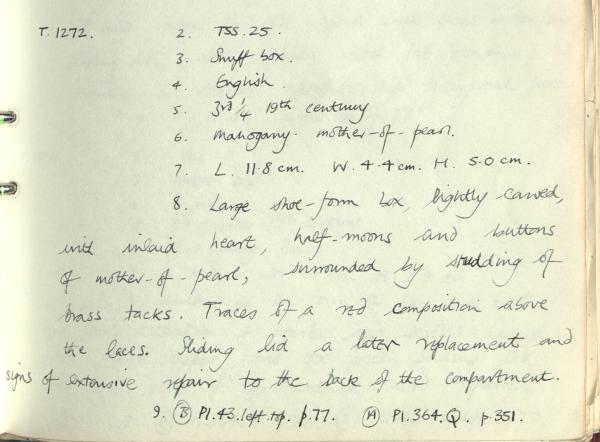 T.1272. 2. TSS.25.
3. Snuff box.
4. English.
5. 3rd 1/4 19th century
6. Mahogany. mother-of-pearl.
7. L. 11.8cm. W. 4.4cm. H. 5.0cm.
8. Large shoe-form box, lightly carved,
with inlaid heart, half-moons and buttons
of mother-of-pearl, surrounded by studding of
brass tacks. Traces of a red composition above
the laces. Sliding lid a later replacement and
signs of extensive repair to the back of the compartment.
9. (B) Pl.43.left top. p.77. (H) Pl.364.Q. p.351.